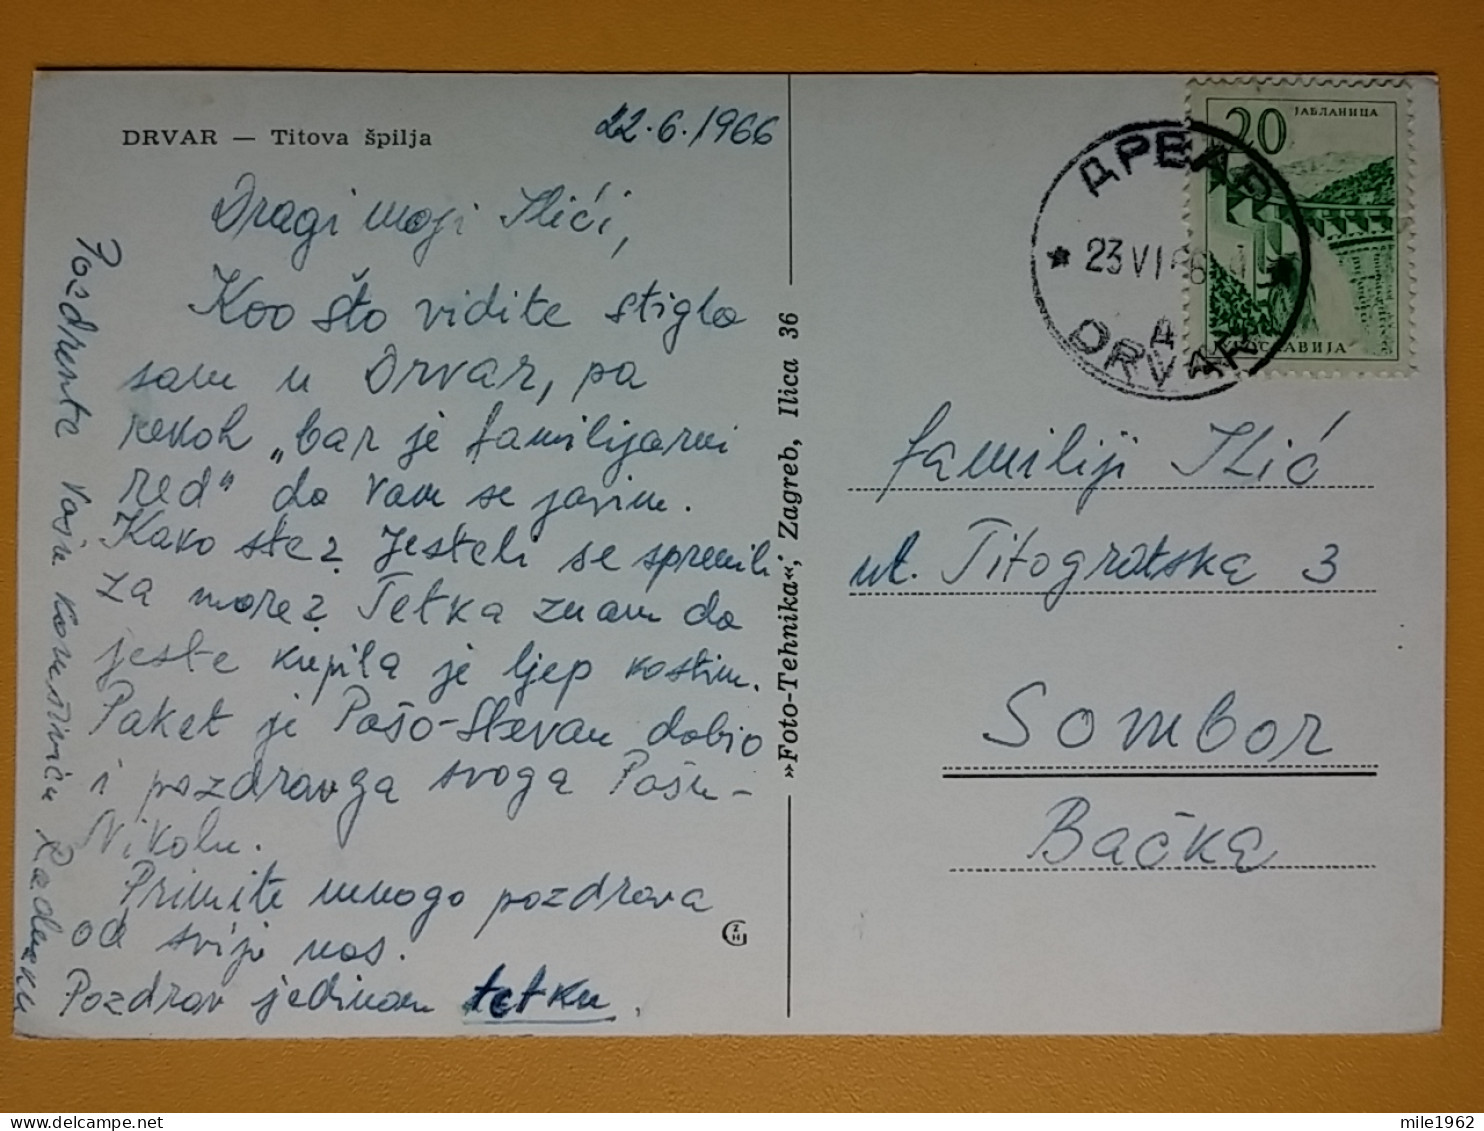 DRVAR — Titova špilja
22.6.1966
Dragi moji Ilići,
Kao što vidite stigla
sam u Drvar, pa
rekoh „bar je familijarni
red" da Vam se javim.
Kako ste? Jesteli se spremili
za more? Tetka znam da
jeste kupila je ljep kostim.
Paket je Pašo-Stevan dobio
i pozdravja svoga Pašu-
Nikolu.
Primite mnogo pozdrava
od sviju nas.
Pozdrav jedinom tetku.
Pozdravite Vašu komšinicu Radinku
»Foto-Tehnika«, Zagreb, Ilica 36
ZH
20
ЈАБЛАНИЦА
ЈУГОСЛАВИЈА
ДРВАР
23 VI 66
Д
DRVAR
familiji Ilić
ul. Titogratska 3
Sombor
Bačka
mile1962